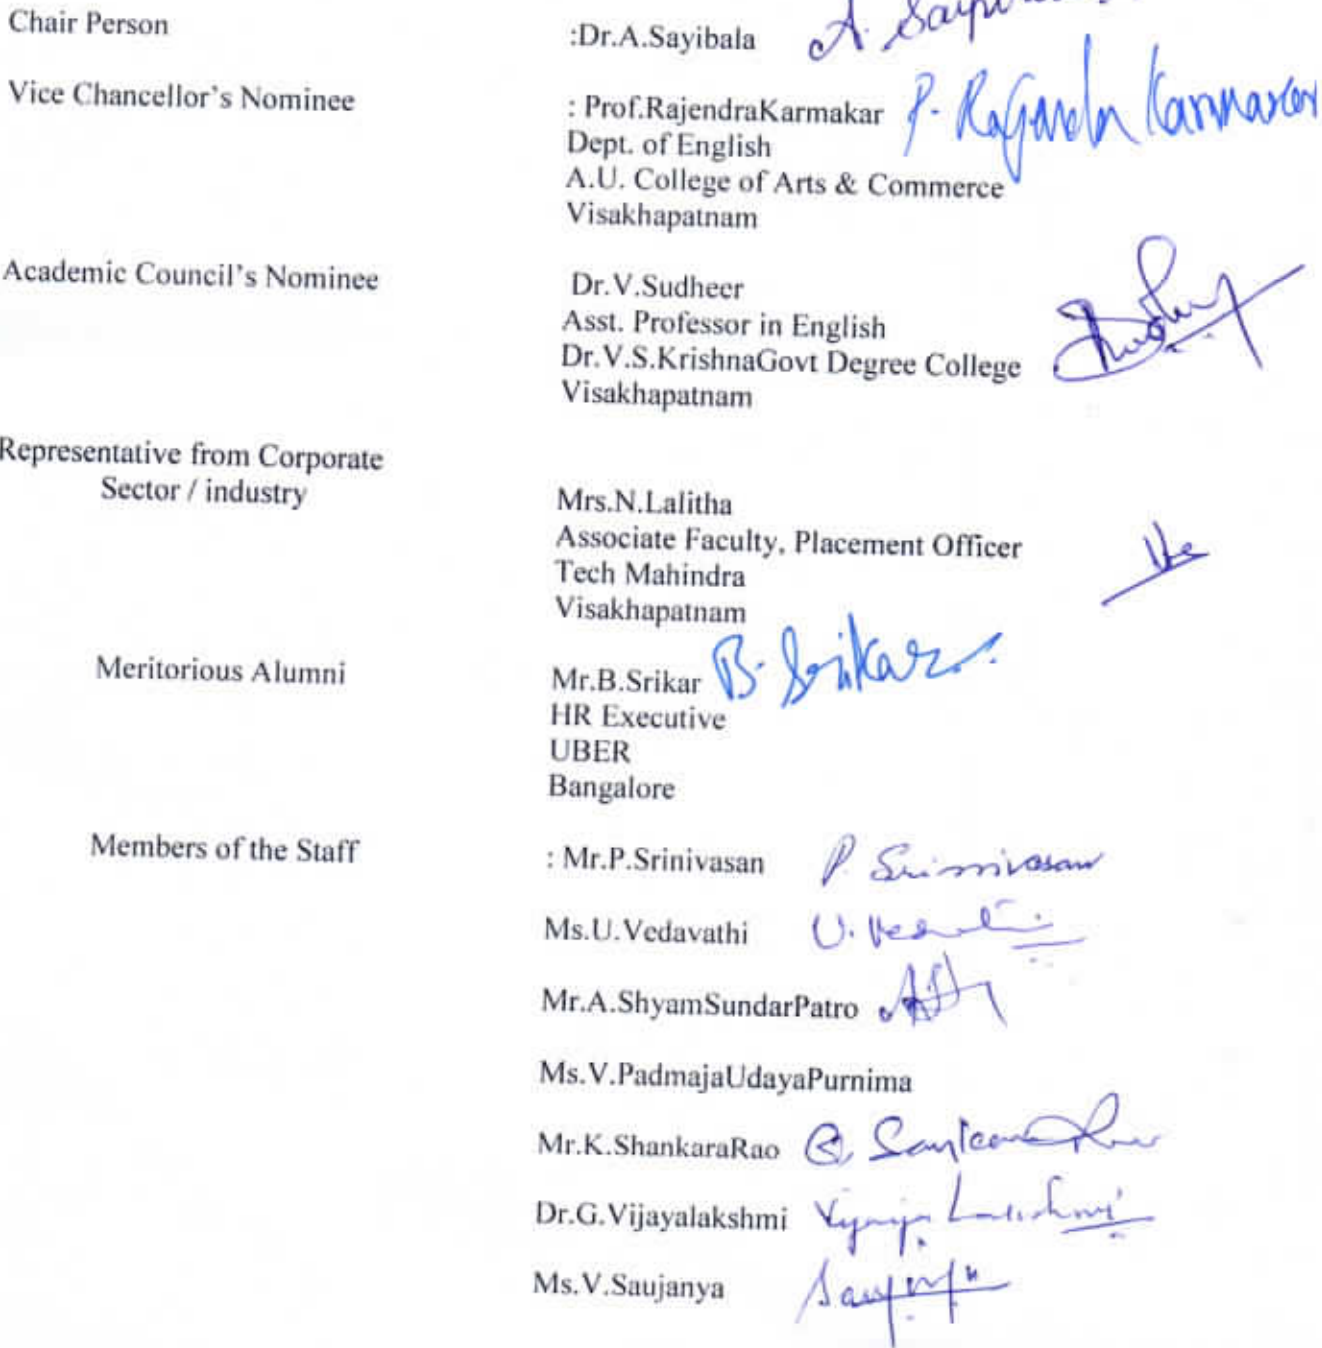 Chair Person :Dr.A.Sayibala A.
Vice Chancellor's Nominee : Prof.RajendraKarmakar P. Rajendra Karmakar
Dept. of English
A.U. College of Arts & Commerce
Visakhapatnam
Academic Council's Nominee Dr.V.Sudheer
Asst. Professor in English
Dr.V.S.KrishnaGovt Degree College
Visakhapatnam
Representative from Corporate
Sector / industry Mrs.N.Lalitha
Associate Faculty, Placement Officer
Tech Mahindra
Visakhapatnam
Meritorious Alumni Mr.B.Srikar B. Srikar
HR Executive
UBER
Bangalore
Members of the Staff : Mr.P.Srinivasan P. Srinivasan
Ms.U.Vedavathi U.
Mr.A.ShyamSundarPatro
Ms.V.PadmajaUdayaPurnima
Mr.K.ShankaraRao
Dr.G.Vijayalakshmi Vijaya Lakshmi
Ms.V.Saujanya